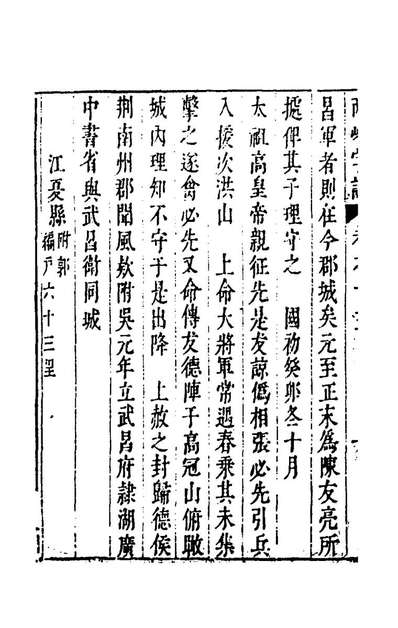 呂軍者則在今郡城矣元至正末為陳友亮所
㨿俾其子理守之　國初癸卯冬十月
太祖高皇帝親征先是友諒僞相張必先引兵
入援次洪山　上命大將軍常遇春乘其未集
擊之遂禽必先又命傅友德陣于高冠山俯瞰
城內理知不守于是出降　上赦之封歸德侯
荆南州郡聞風欵附吳元年立武昌府隷湖廣
中書省與武昌衛同城
江夏縣附郭
編戶六十三里